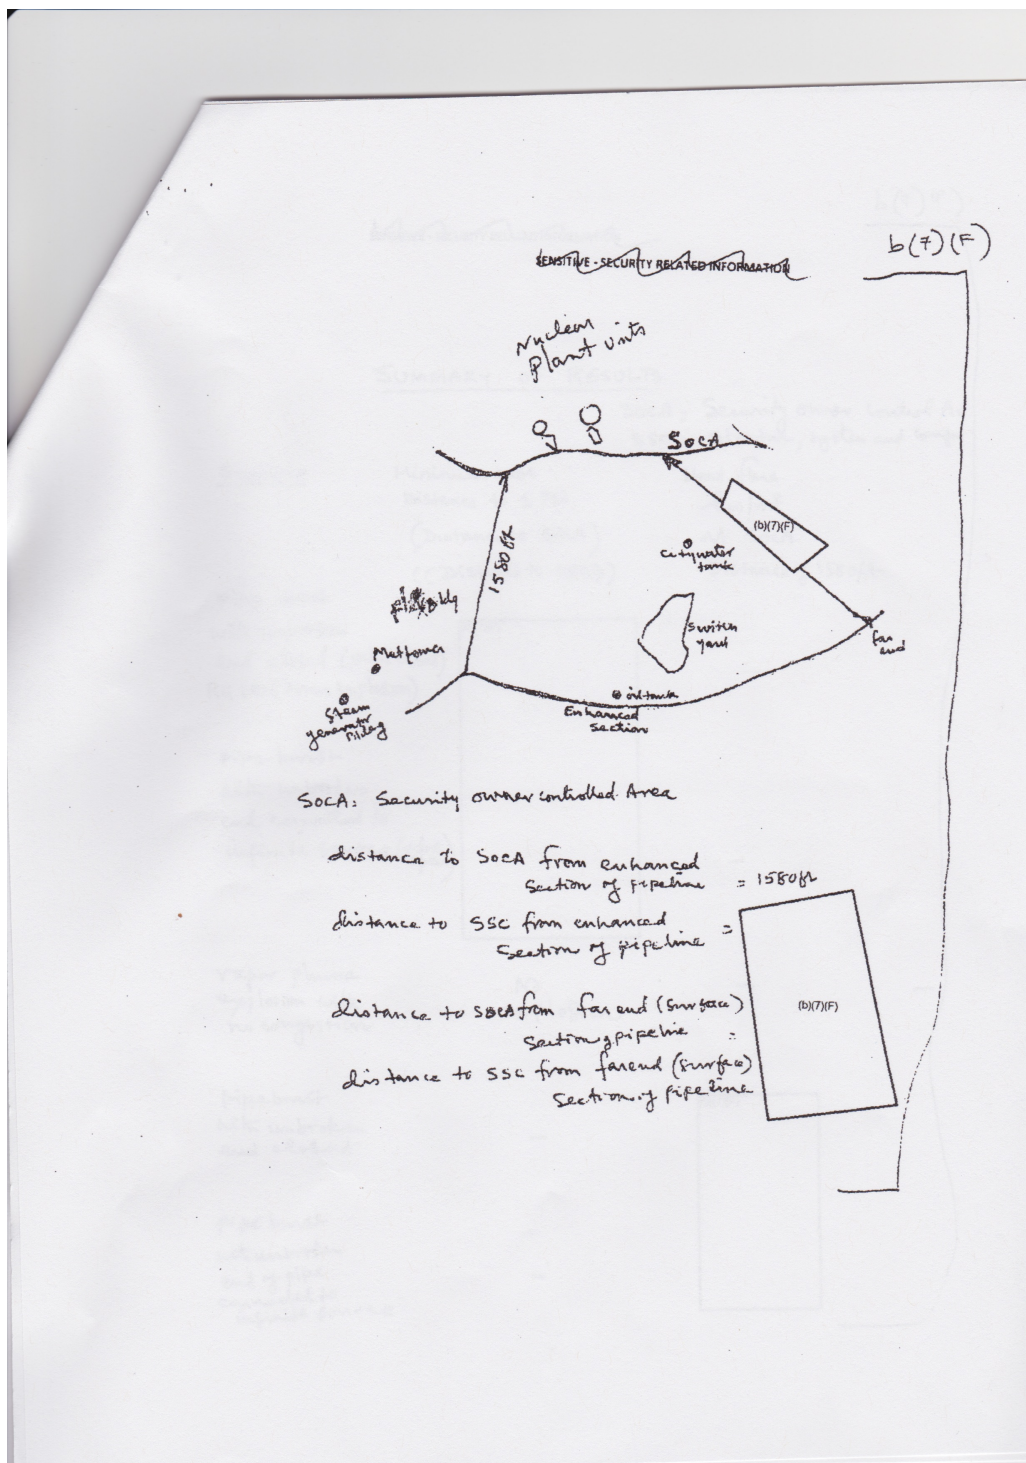 b(7)(F)
SENSITIVE - SECURITY RELATED INFORMATION
Nuclear
Plant units
SOCA
(b)(7)(F)
1580 ft
City water
tank
Switch
yard
far
end
Met tower
Steam
generator
Bldg
oil tank
Enhanced
Section
SOCA: Security owner controlled Area
distance to SOCA from enhanced
Section of pipeline = 1580 ft
distance to SSC from enhanced =
Section of pipeline
(b)(7)(F)
distance to SOCA from far end (surface)
Section of pipeline =
distance to SSC from far end (surface)
Section of pipeline
SUMMARY OF RESULTS